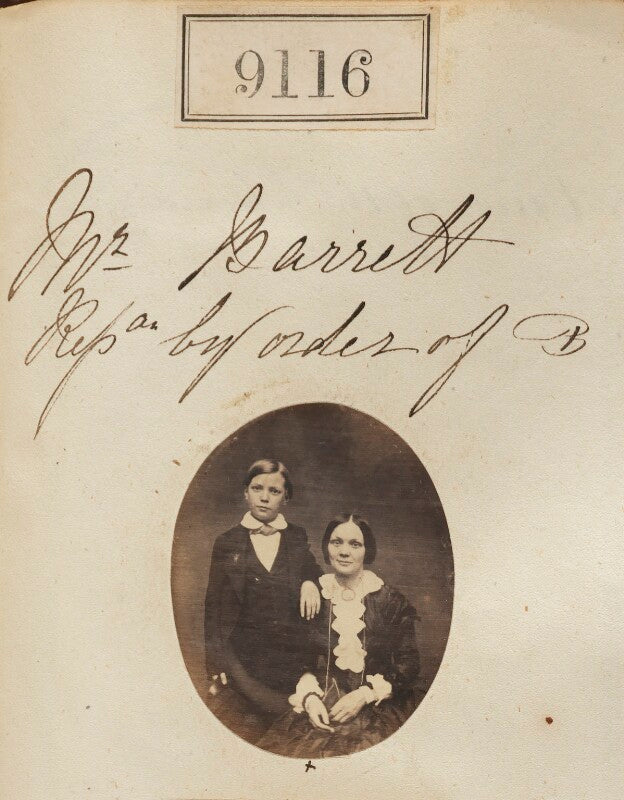 9116
Mr Barrett
Repan by order of B